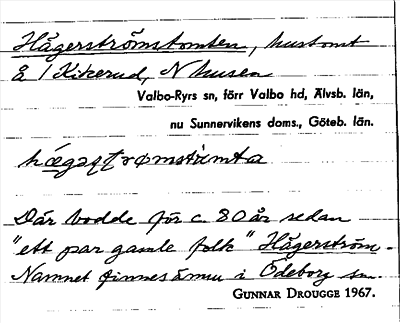 Hågerströmstomten, hustomt
å 1 Kikerud, N husen
Valbo-Ryrs sn, förr Valbo hd, Älvsb. län,
nu Sunnervikens doms., Göteb. län.
Där bodde för c. 80 år sedan
"ett par gamle folk" Hågerström.
Namnet finnes ännu i Ödeborg sn.
GUNNAR DROUGGE 1967.